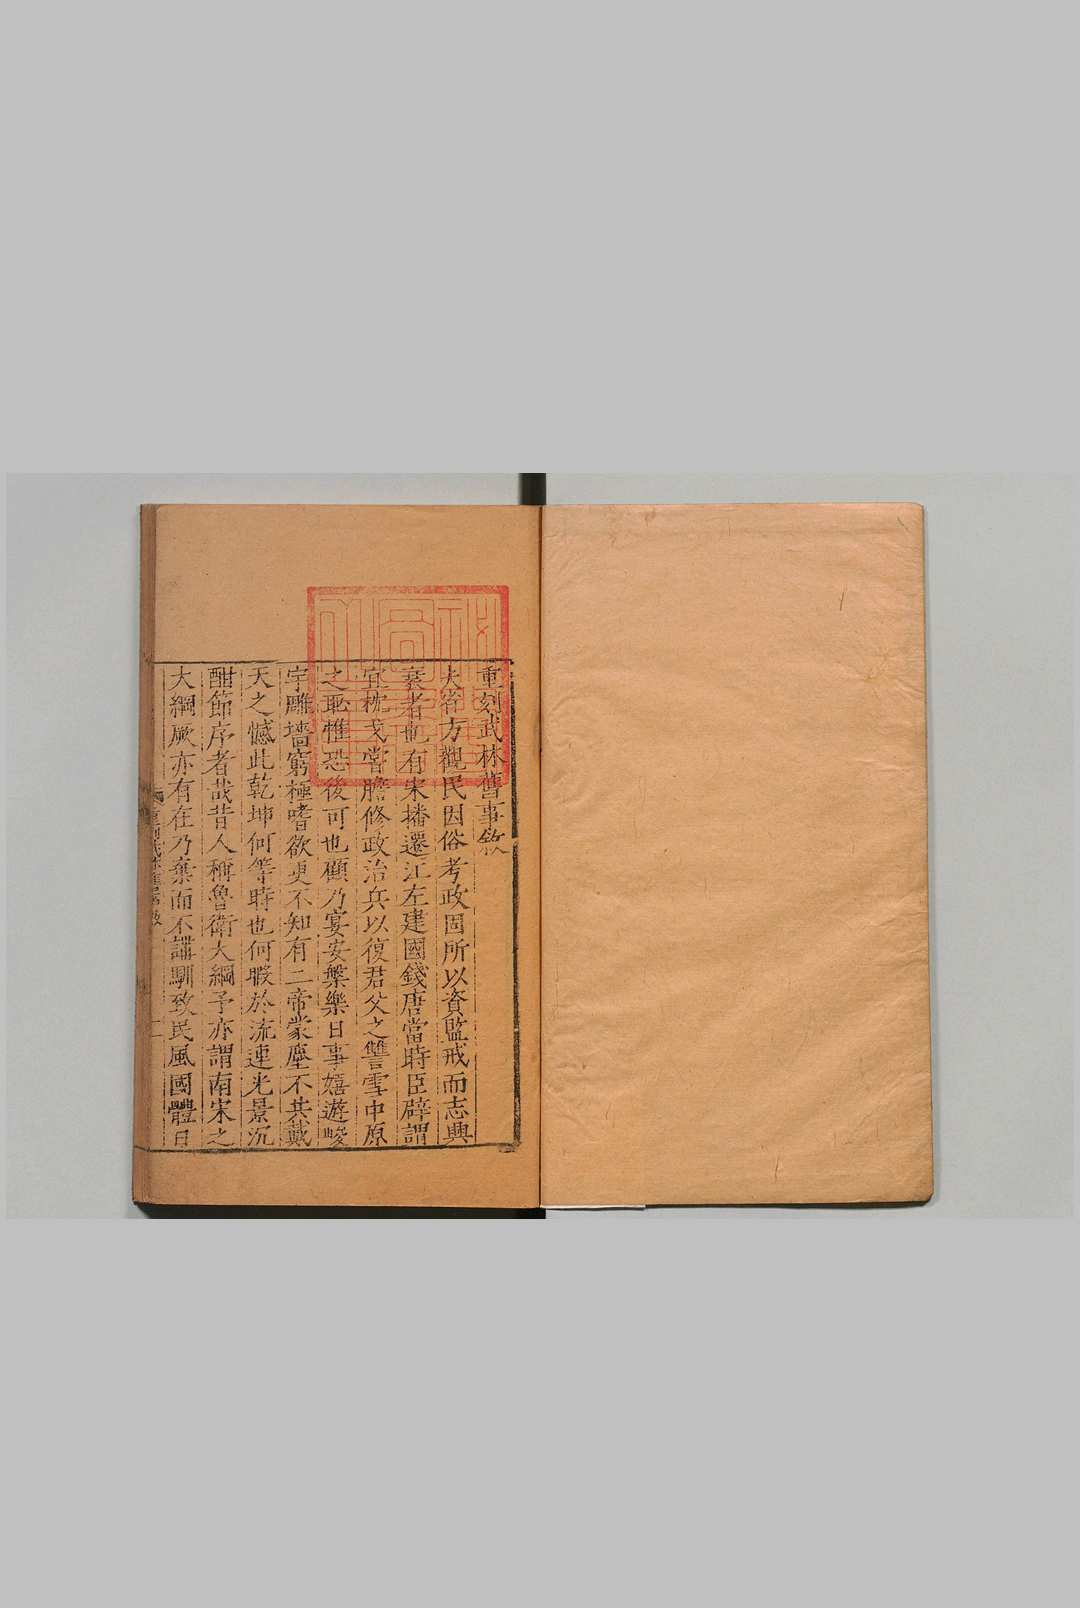 重刻武林舊事敘
夫省方觀民因俗考政固所以資監戒而志興
衰者也有宋播遷江左建國錢唐當時臣辟謂
宜枕戈嘗膽修政治兵以復君父之讐雪中原
之恥惟恐後可也顧乃宴安槃樂日事嬉遊峻
宇雕墻窮極嗜欲更不知有二帝蒙塵不共戴
天之憾此乾坤何等時也何暇於流連光景沉
酣節序者哉昔人稱魯衛大綱予亦謂南宋之
大綱厥亦有在乃棄而不講馴致民風國體日